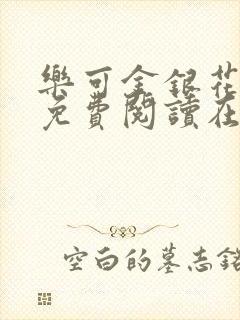 樂可金銀花
免費閱讀在
空白的墓志銘